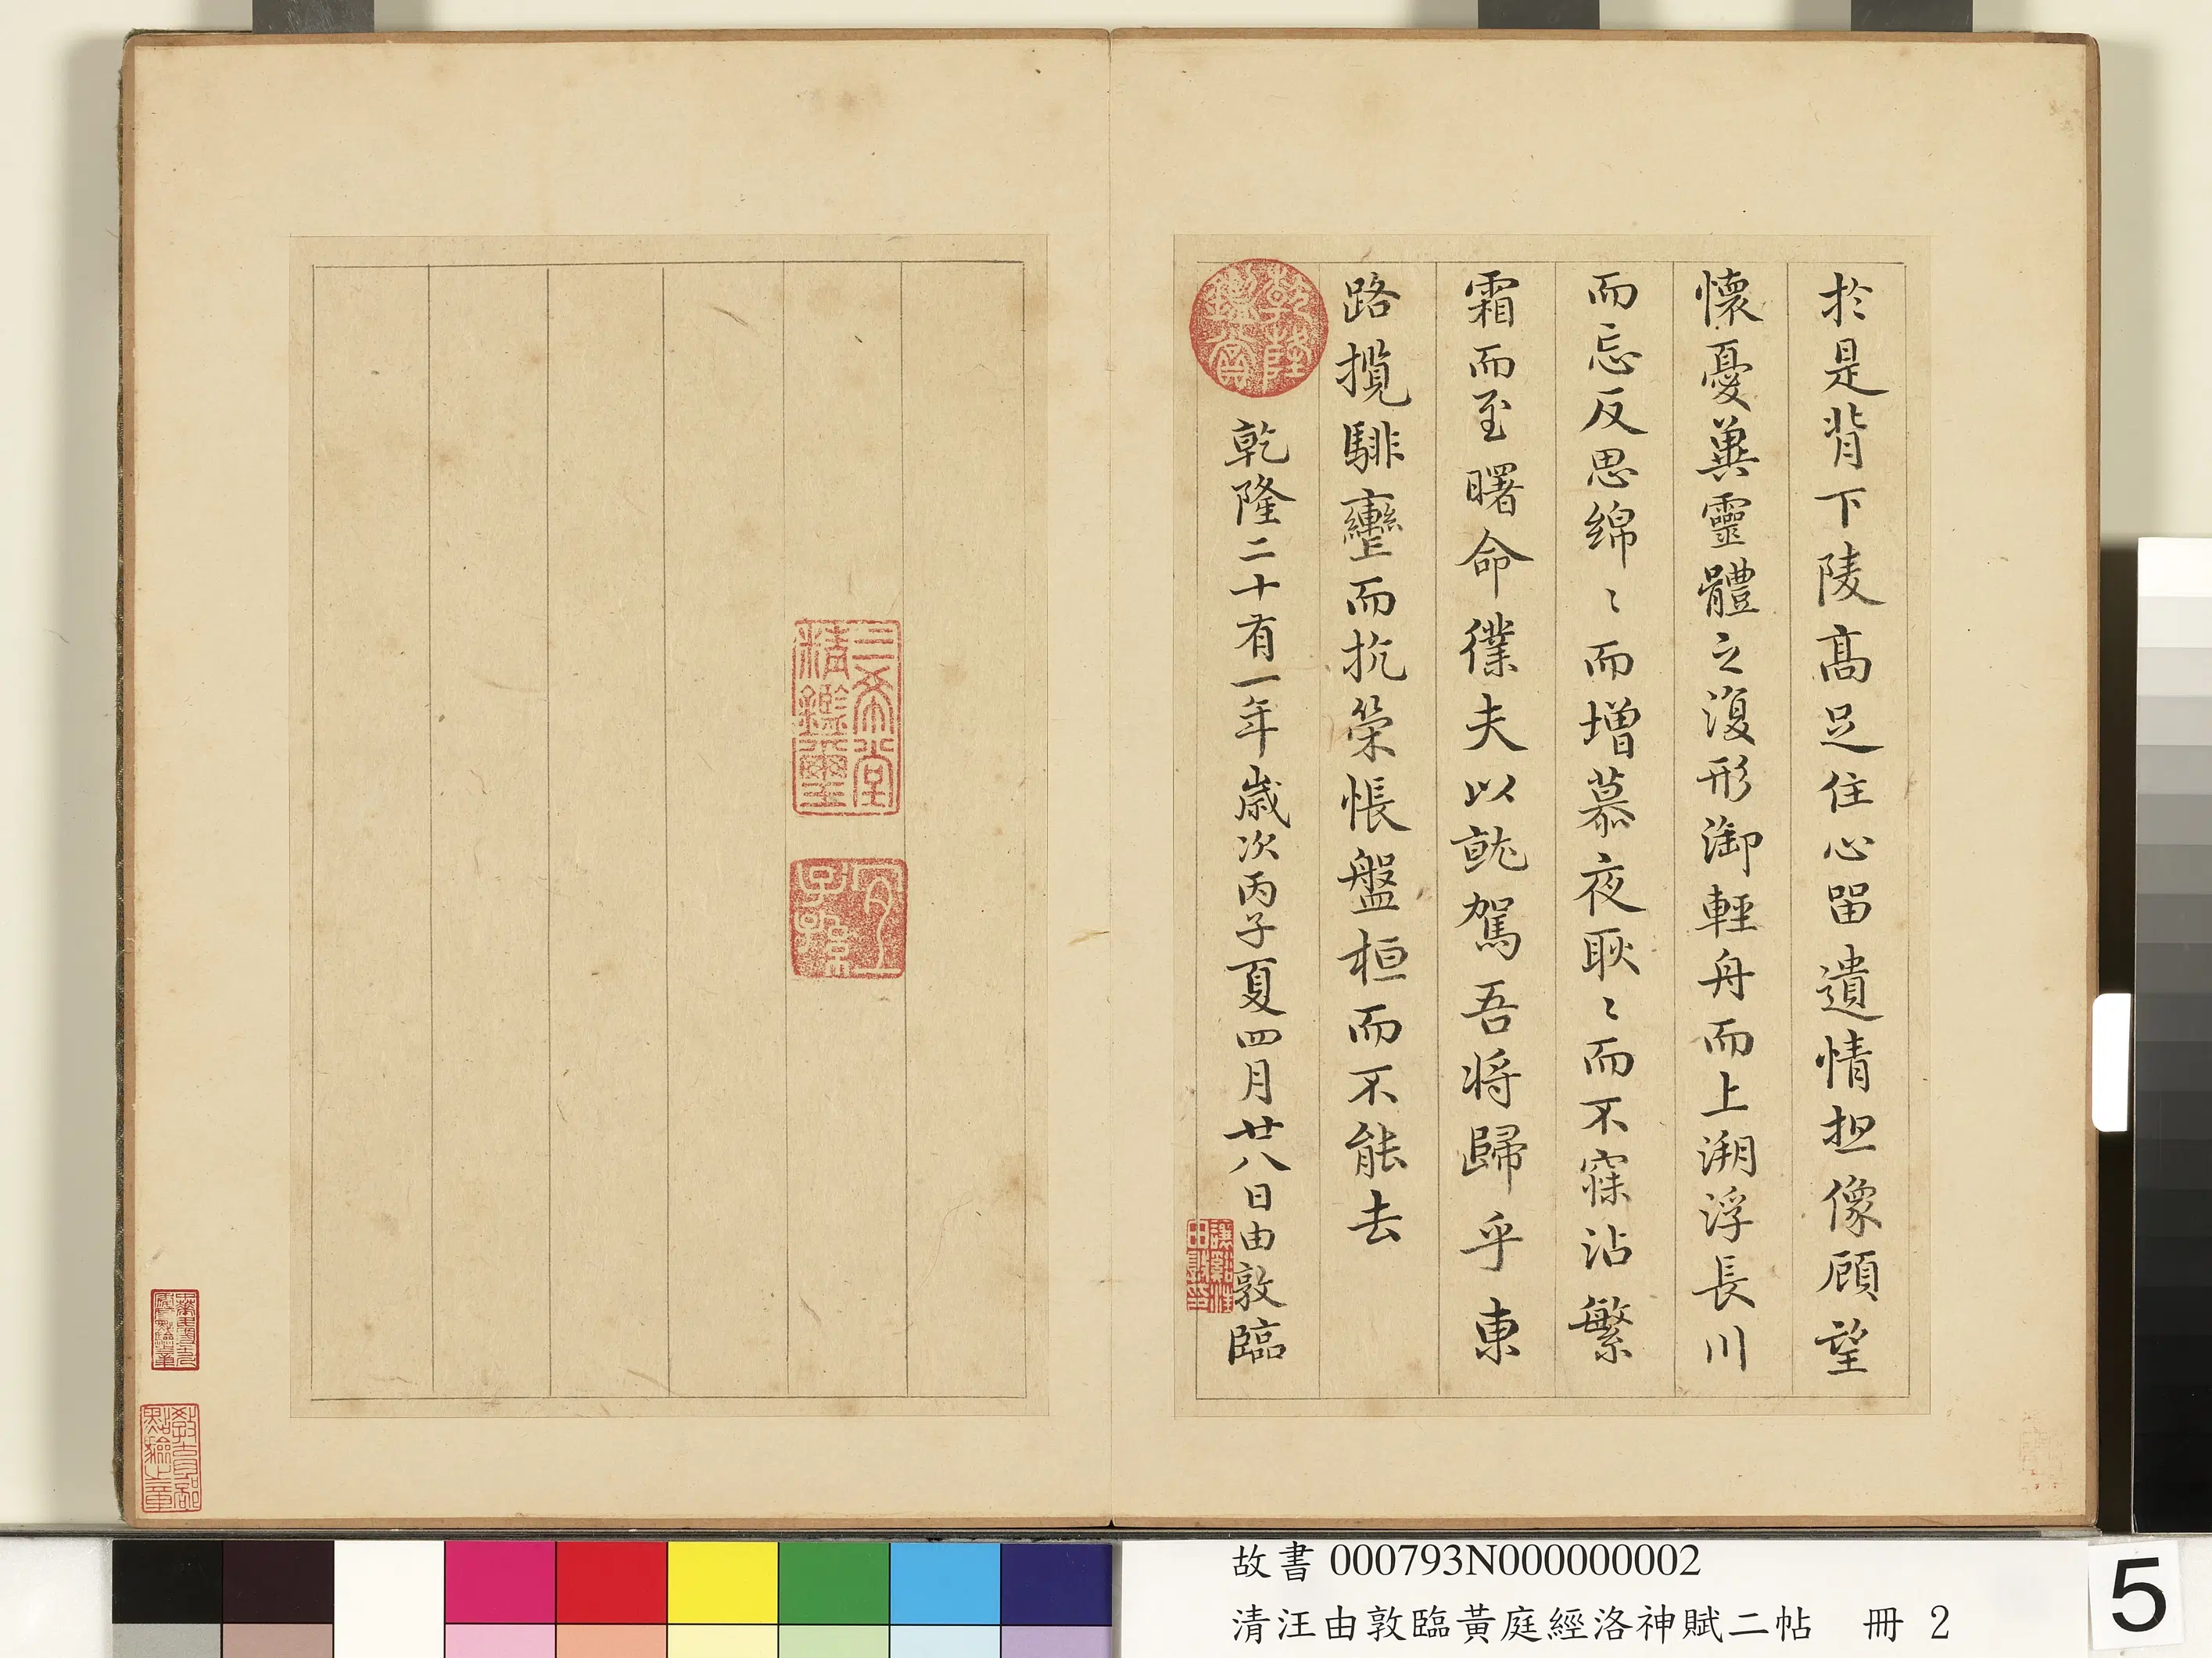 於是背下陵高足住心留遺情想像顧望
懷憂冀靈體之復形御輕舟而上溯浮長川
而忘反思綿〻而增慕夜耿〻而不寐沾繁
霜而至曙命僕夫以就駕吾將歸乎東
路攬騑轡而抗策悵盤桓而不能去
乾隆鑑賞
乾隆二十有一年歲次丙子夏四月廿八日由敦臨
三希堂精鑑璽
宜子孫
故書 000793N000000002
清汪由敦臨黃庭經洛神賦二帖 冊 2
5